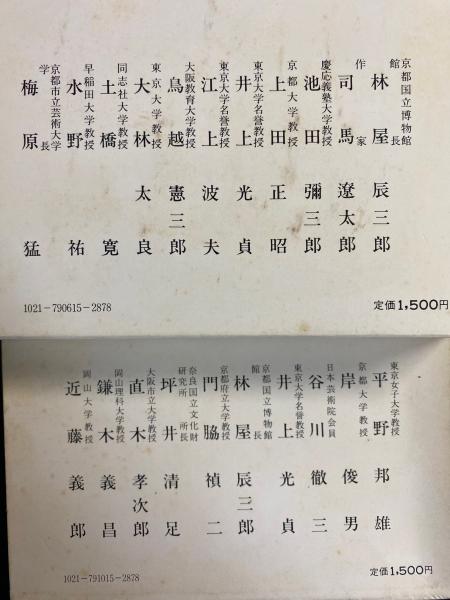 京都国立博物館館長
林屋辰三郎
作家
司馬遼太郎
慶応義塾大学教授
池田彌三郎
京都大学教授
上田正昭
東京大学名誉教授
井上光貞
東京大学名誉教授
江上波夫
大阪教育大学教授
鳥越憲三郎
東京大学教授
大林太良
同志社大学教授
土橋寛
早稲田大学教授
水野祐
京都市立芸術大学学長
梅原猛
1021-790615-2878
定価1,500円
東京女子大学教授
平野邦雄
京都大学教授
岸俊男
日本芸術院会員
谷川徹三
東京大学名誉教授
井上光貞
京都国立博物館館長
林屋辰三郎
京都府立大学教授
門脇禎二
奈良国立文化財研究所所長
坪井清足
大阪市立大学教授
直木孝次郎
岡山理科大学教授
鎌木義昌
岡山大学教授
近藤義郎
1021-791015-2878
定価1,500円